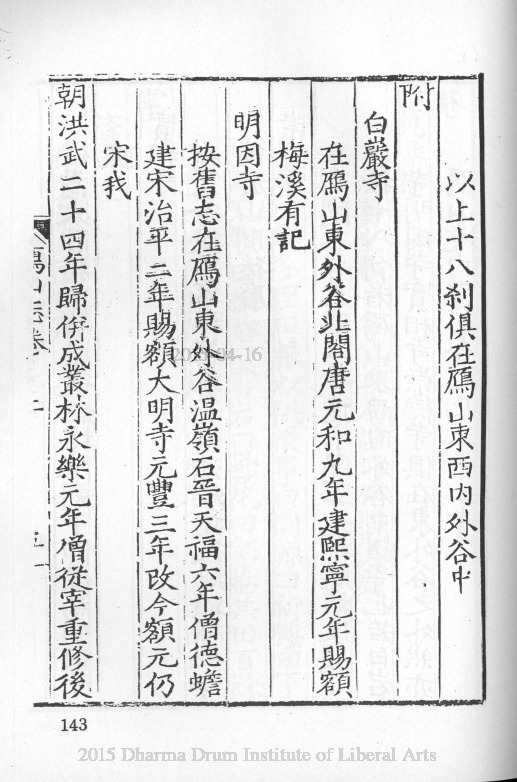 以上十八剎俱在鴈山東西內外谷中
附
白巖寺
在鴈山東外谷北閣唐元和九年建熙寧元年賜額
梅溪有記
明因寺
按舊志在鴈山東外谷温嶺石晉天福六年僧德蟾
建宋治平二年賜額大明寺元豐三年改今額元仍
宋我
朝洪武二十四年歸併成叢林永樂元年僧從宰重修後
鴈山志卷二
143
2015-04-16
2015 Dharma Drum Institute of Liberal Arts